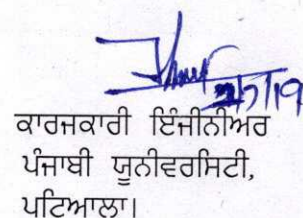 2/7/19
ਕਾਰਜਕਾਰੀ ਇੰਜੀਨੀਅਰ
ਪੰਜਾਬੀ ਯੂਨੀਵਰਸਿਟੀ,
ਪਟਿਆਲਾ।